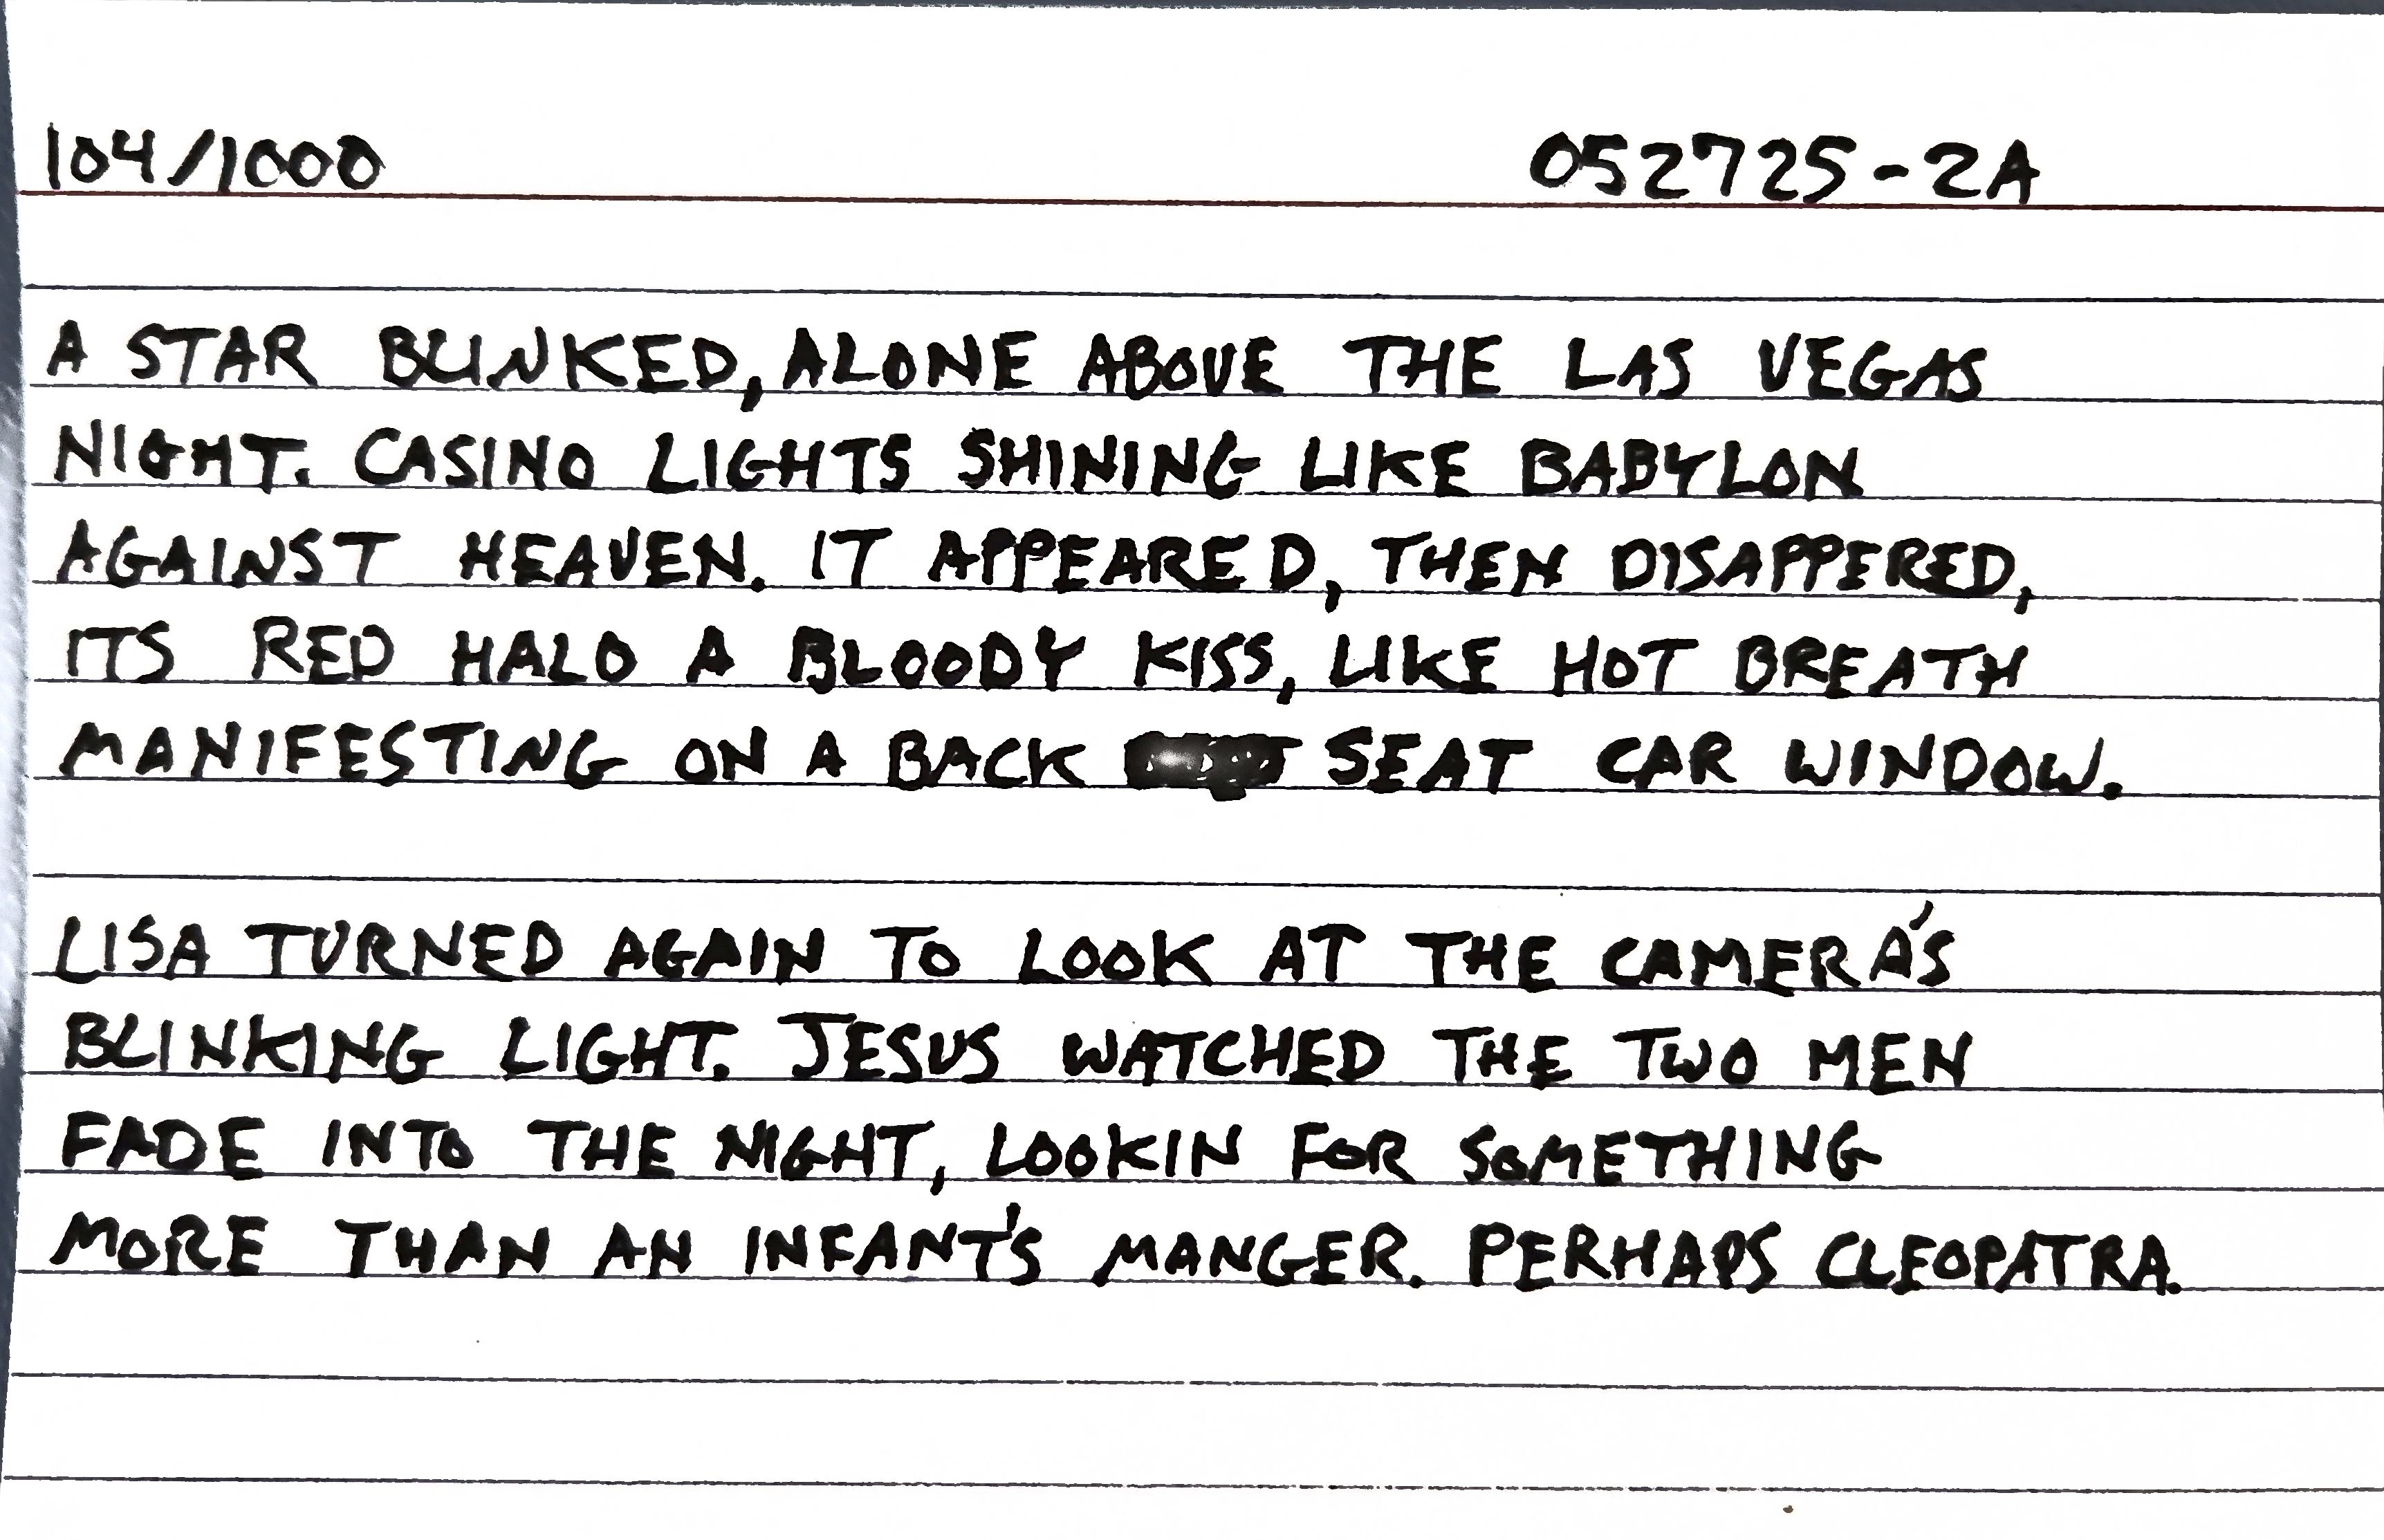 104/1000 052725-2A
A STAR BLINKED, ALONE ABOVE THE LAS VEGAS
NIGHT. CASINO LIGHTS SHINING LIKE BABYLON
AGAINST HEAVEN. IT APPEARED, THEN DISAPPERED,
ITS RED HALO A BLOODY KISS, LIKE HOT BREATH
MANIFESTING ON A BACK SEAT CAR WINDOW.
LISA TURNED AGAIN TO LOOK AT THE CAMERA'S
BLINKING LIGHT. JESUS WATCHED THE TWO MEN
FADE INTO THE NIGHT, LOOKIN FOR SOMETHING
MORE THAN AN INFANT'S MANGER. PERHAPS CLEOPATRA.